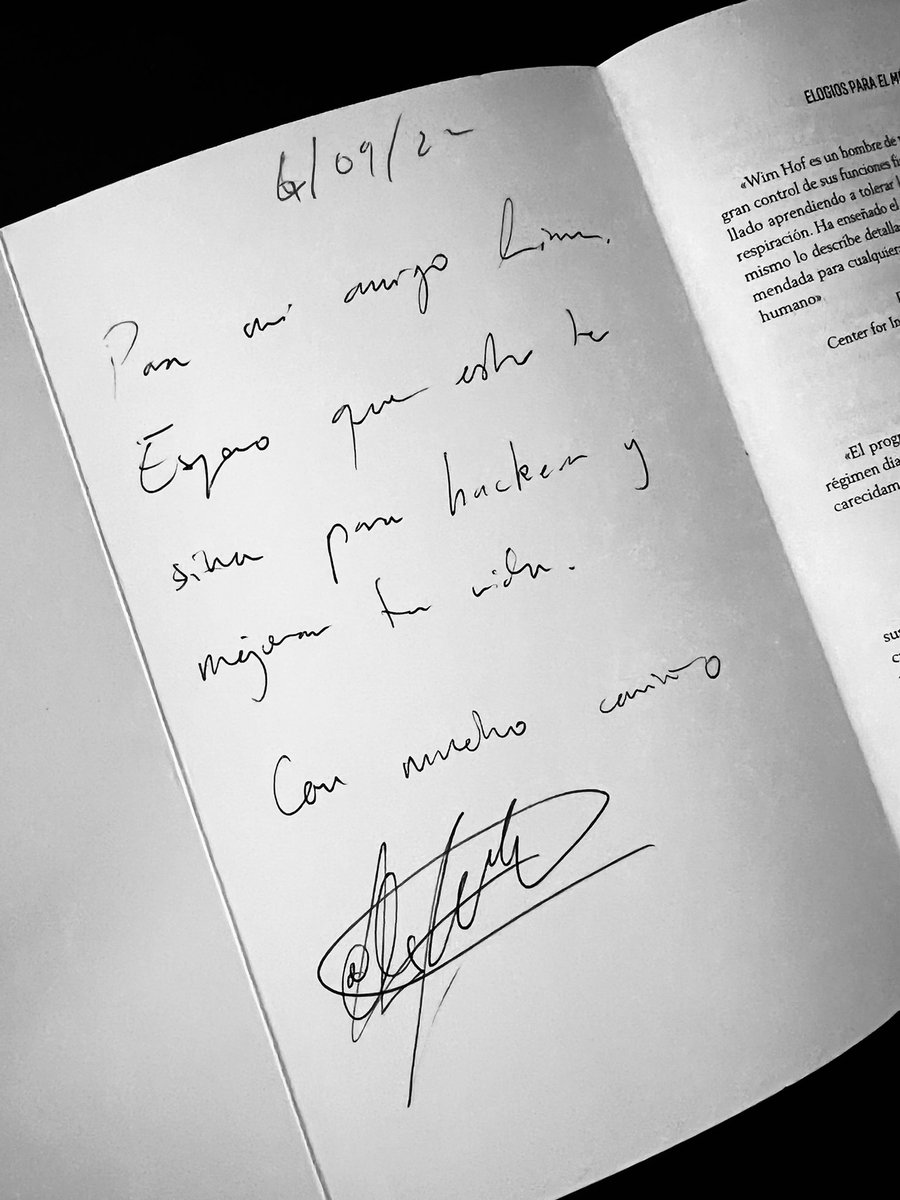 6/09/22
Para mi amigo
Espero que esto te
sirva para hackear y
mejorar tu vida.
Con mucho cariño
ELOGIOS PARA EL M
«Wim Hof es un hombre de
gran control de sus funciones fí
llado aprendiendo a tolerar
respiración. Ha enseñado el
mismo lo describe detalla
mendada para cualquier
humano»
Center for In
«El prog
régimen dia
carecidam
sus